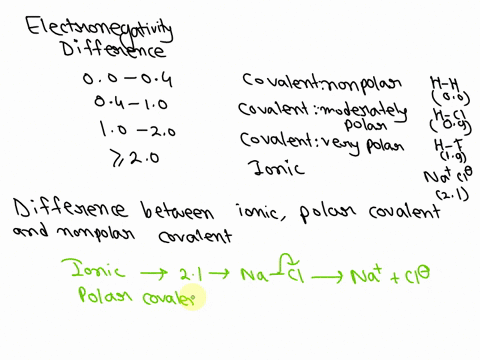 Electronegativity
Difference
0.0 - 0.4 Covalent: nonpolar H-H (0.0)
0.4 - 1.0 Covalent: moderately polar H-Cl (0.9)
1.0 - 2.0 Covalent: very polar H-F (1.9)
≥ 2.0 Ionic Na⁺ Cl⊖ (2.1)
Difference between ionic, polar covalent
and nonpolar covalent
Ionic → 2.1 → Na-Cl → Na⁺ + Cl⊖
Polar covale